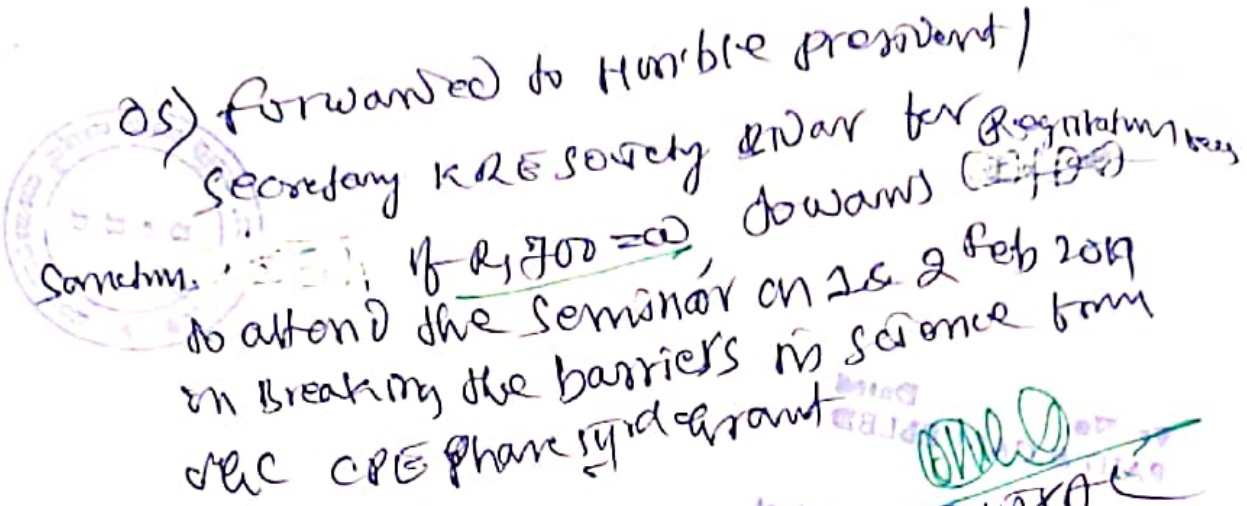 OS) Forwarded to Hon'ble president/
secretary KRE Society BIDAR for Registration fees
Sanction. of Rs 700=00 towards
to attend the seminar on 1 & 2 Feb 2019
on Breaking the barriers in science from
UGC CPE Phase IInd Grant